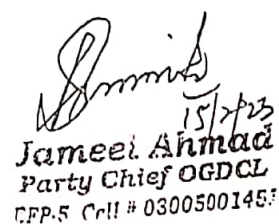 15/2/23
Jameel Ahmad
Party Chief OGDCL
Cell # 0300500145